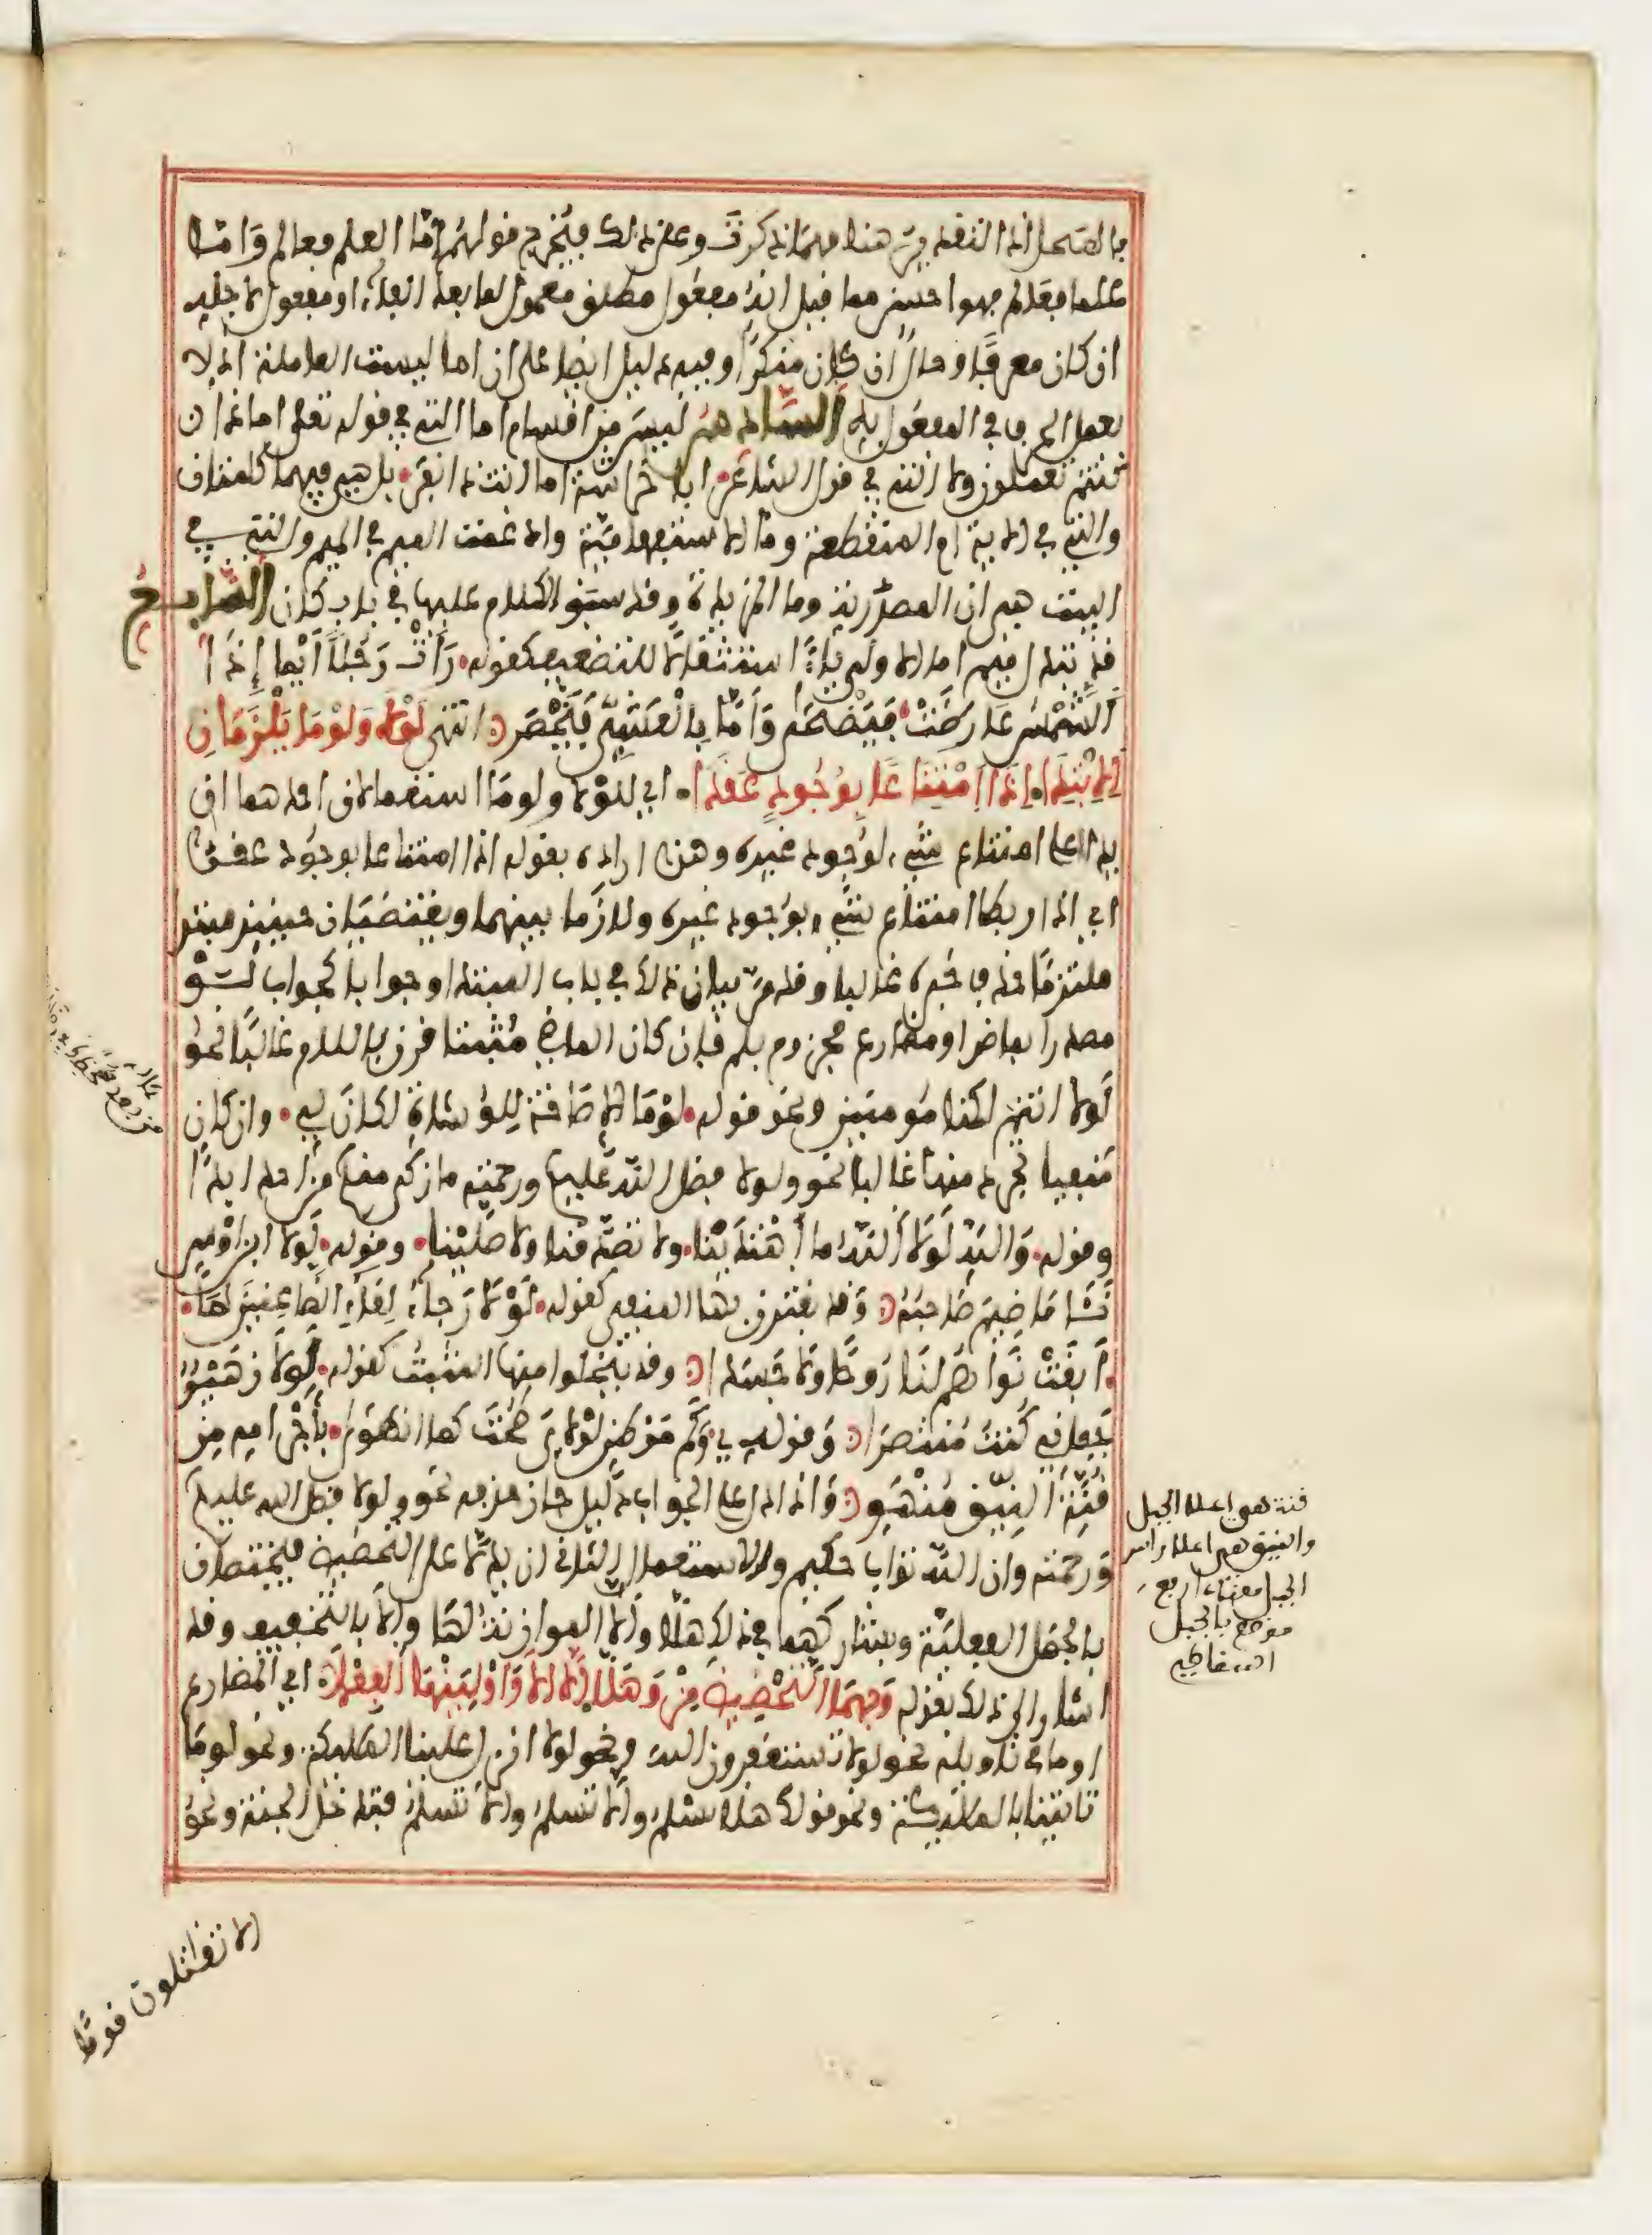 فالصحيح ان التقدير هنا مهما ذكرت وعلى ذلك فيتخرج قولهم اما العلم فعالم واما
علما فعالم فهو احسن مما قيل انه مفعول مطلق معمول لما بعد الفاء او مفعول لاجله
ان كان معرفا وحالا ان كان منكرا وفيه دليل ايضا على ان اما ليست العاملة اذ لا
يعمل الحرف في المفعول به السادس ليس من اقسام اما التي في قوله تعلى اماذا
كنتم تعملون ولا التي في قول الشاعر ابا خراشة اما انت ذا نفر بل هي فيهما كلمتان
والتي في الاية ام المنقطعة وما الاستفهامية وادغمت الميم في الميم والتي في
البيت هي ان المصدرية وما المزيدة وقد سبق الكلام عليها في باب كان السابع
قد تبدل ميم اما الاولى ياء استثقالا للتضعيف كقوله رَأَتْ رَجُلًا أَيْمَا إِذَا
الشَّمْسُ عَارَضَتْ فَيَضْحَى وَأَمَّا بِالْعَشِيِّ فَيَخْصَر انتهى لَوْلَا وَلَوْمَا يَلْزَمَانِ
الِابْتِدَا إِذَا امْتِنَاعًا بِوُجُودٍ عَقَدَا اي للولا ولوما استعمالان احدهما ان
يدلا على امتناع شيء لوجود غيره وهذا اراده بقوله اذا امتناعا بوجود عقدا
اي اذا ربطا امتناع شيء بوجود غيره ولازما بينهما ويقتضيان حينئذ مبتدا
ملتزما حذف خبره غالبا وقد مر بيان ذلك في باب المبتدا وجوابا كجواب لو
مصدرا بماض او مضارع مجزوم بلم فان كان الماضي مثبتا قرن باللام غالبا نحو
لولا انتم لكنا مومنين ونحو قوله لوما الاصاخة للوشاة لكان لي وان كان
منفيا تجرد منها غالبا نحو ولولا فضل الله عليكم ورحمته ما زكى منكم من احد ابدا
وقوله والله لولا الله ما اهتدينا ولا تصدقنا ولا صلينا وقوله لولا ابن اوس
نأى ما ضيم صاحبه وقد يقترن بها المنفي كقوله لولا رجاء لقاء الظاعنين لما
ابقت نواهم لنا روحا ولا جسدا وقد يخلوا منها المثبت كقوله لولا زهير
جفاني كنت منتصرا وقوله وكم موطن لولاي طحت كما هوى باجرامه من
قنة النيق منهو واذا دل على الجواب دليل جاز حذفه نحو ولولا فضل الله عليكم
ورحمته وان الله تواب حكيم والاستعمال الثاني ان يدلا على التحضيض فيختصان
بالجمل الفعلية ويشاركهما في ذلك هلا والا الموازنة لها والا بالتخفيف وقد
اشار الى ذلك بقوله وَبِهِمَا التَّحْضِيضَ مِزْ وَهَلَّا أَلَّا أَلَا وَأَوْلِيَنْهَا الْفِعْلَا اي المضارع
او ما في تاويله نحو لولا تستغفرون الله ونحو لولا انزل علينا الملائكة ونحو لوما
تاتينا بالملائكة ونحو قولك هلا تسلم والا تسلم والا تسلم فتدخل الجنة ونحو
الا تقاتلون قوما
قنة هي اعلا الجبل
والنيق هي اعلا راس
الجبل